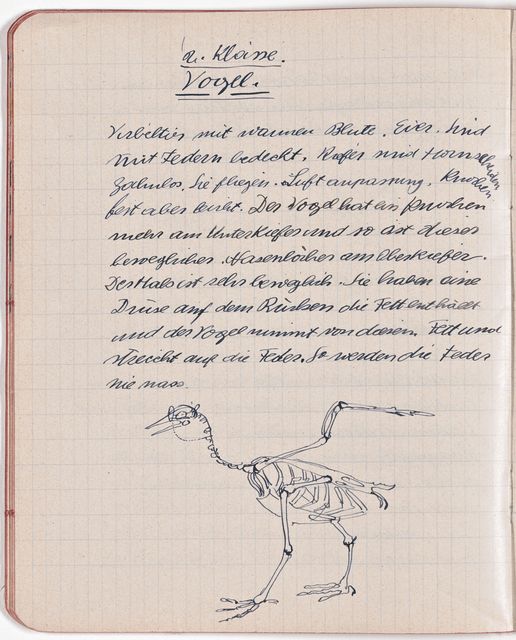 2. Klasse.
Vogel.
Wirbeltier mit warmen Blute. Eier. Sind
mit Federn bedeckt. Kiefer mit Hornscheiden
Zahnlos. Sie fliegen. Luftanpassung. Knochen
fest aber leicht. Der Vogel hat ein Knochen
mehr am Unterkiefer und so ist dieser
beweglicher. Nasenlöcher am Oberkiefer.
Der Hals ist sehr beweglich. Sie haben eine
Drüse auf dem Rücken die Fett enthält
und der Vogel nimmt von diesem Fett und
streicht auf die Feder. So werden die Feder
nie nass.